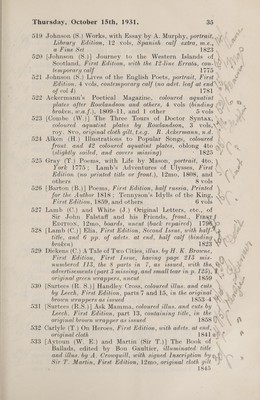 Thursday, October 15th, 1931. 35
519 Johnson (S.) Works, with Essay by A. Murphy, portrait,
Library Edition, 12 vols, Spanish calf extra, m.e.,
a Fine Set 1823
520 [Johnson (S.)] Journey to the Western Islands of
Scotland, First Edition, with the 12-line Errata, con-
temporary calf 1775
521 Johnson (S.) Lives of the English Poets, portrait, First
Edition, 4 vols, contemporary calf (no advt. leaf at end
of vol 4) 1781
522 Ackermann's Poetical Magazine, coloured aquatint
plates after Rowlandson and others, 4 vols (binding
broken, w.a.f.), 1809-11, and 1 other 5 vols
523 [Combe (W.)] The Three Tours of Doctor Syntax,
coloured aquatint plates by Rowlandson, 3 vols,
roy. 8vo, original cloth gilt, t.e.g. R. Ackermann, n.d.
524 Alken (H.) Illustrations to Popular Songs, coloured
front. and 42 coloured aquatint plates, oblong 4to
(slightly soiled, and covers missing) 1825
525 Gray (T.) Poems, with Life by Mason, portrait, 4to,
York 1775; Lamb's Adventures of Ulysses, First
Edition (no printed title or front.), 12mo, 1808, and
others 8 vols
526 [Burton (R.)] Poems, First Edition, half russia, Printed
for the Author 1818; Tennyson's Idylls of the King,
First Edition, 1859, and others 6 vols
527 Lamb (C.) and White (J.) Original Letters, etc. of
Sir John Falstaff and his Friends, front., First
Edition, 12mo, boards, uncut (back repaired) 1796
528 [Lamb (C.)] Elia, First Edition, Second Issue, with half-
title, and 6 pp. of advts. at end, half calf (binding
broken) 1823
529 Dickens (C.) A Tale of Two Cities, illus. by H. K. Browne,
First Edition, First Issue, having page 213 mis-
numbered 113, the 8 parts in 7, as issued, with the
advertisements (part 3 missing, and small tear in p. 125),
original green wrappers, uncut 1859
530 [Surtees (R. S.)] Handley Cross, coloured illus. and cuts
by Leech, First Edition, parts 7 and 15, in the original
brown wrappers as issued 1853-4
531 [Surtees (R.S.)] Ask Mamma, coloured illus. and cuts by
Leech, First Edition, part 13, containing title, in the
original brown wrapper as issued 1858
532 Carlyle (T.) On Heroes, First Edition, with advts. at end,
original cloth 1841
533 [Aytoun (W. E.) and Martin (Sir T.)] The Book of
Ballads, edited by Bon Gaultier, illuminated title
and illus. by A. Crowquill, with signed Inscription by
Sir T. Martin, First Edition, 12mo, original cloth gilt
1845